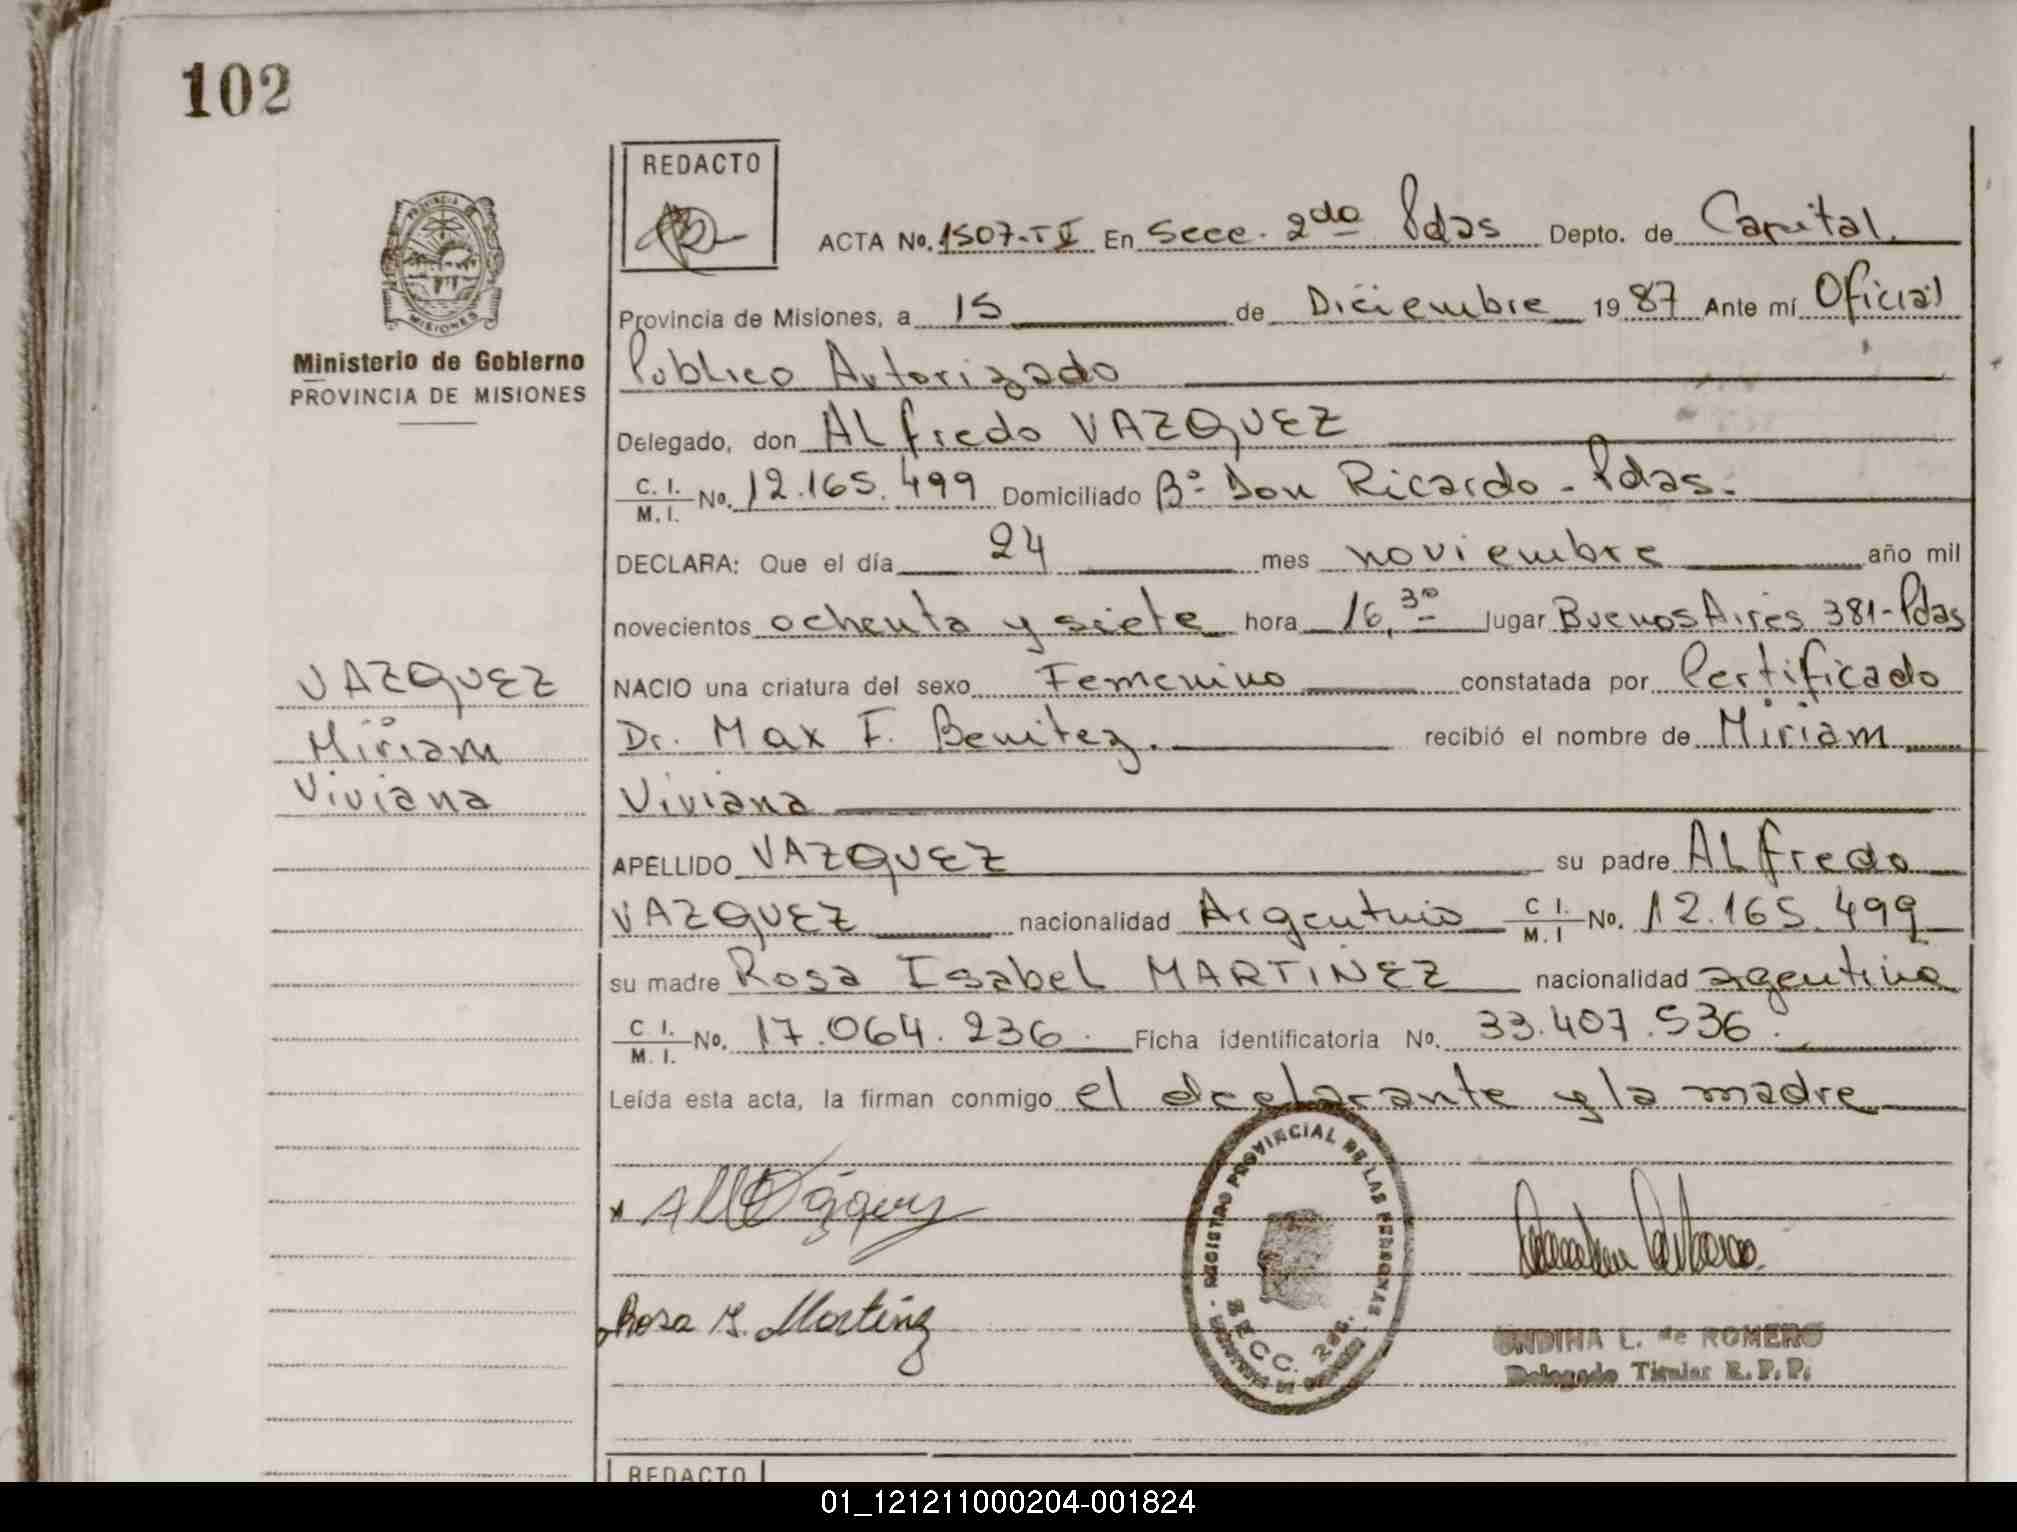 102
REDACTO
ACTA No. 1507-TI En Secc. 2da Pdas Depto. de Capital.
PROVINCIA DE
MISIONES
Provincia de Misiones, a 15 de Diciembre 1987 Ante mí Oficial
Ministerio de Gobierno
PROVINCIA DE MISIONES
Publico Autorizado
Delegado, don ALfredo VAZQUEZ
C. I.
M. I. No. 12.165.499 Domiciliado Bº Don Ricardo - Pdas.
DECLARA: Que el día 24 mes noviembre año mil
novecientos ochenta y siete hora 16,30 lugar Buenos Aires 381-Pdas
VAZQUEZ
Miriam
Viviana
NACIO una criatura del sexo Femenino constatada por Certificado
Dr. Max F. Benitez. recibió el nombre de Miriam
Viviana
APELLIDO VAZQUEZ su padre ALfredo
VAZQUEZ nacionalidad Argentino C I. M. I No. 12.165.499
su madre Rosa Isabel MARTINEZ nacionalidad agentina
C I.
M. I. No. 17.064.236. Ficha identificatoria No. 33.407.536.
Leída esta acta, la firman conmigo el declarante y la madre
REGISTRO PROVINCIAL DE LAS PERSONAS
SECC. 2da.
x Alf Vázquez
Rosa I. Martinez
ONDINA L. de ROMERO
Delegado Titular R. P. P.
REDACTO
01_121211000204-001824